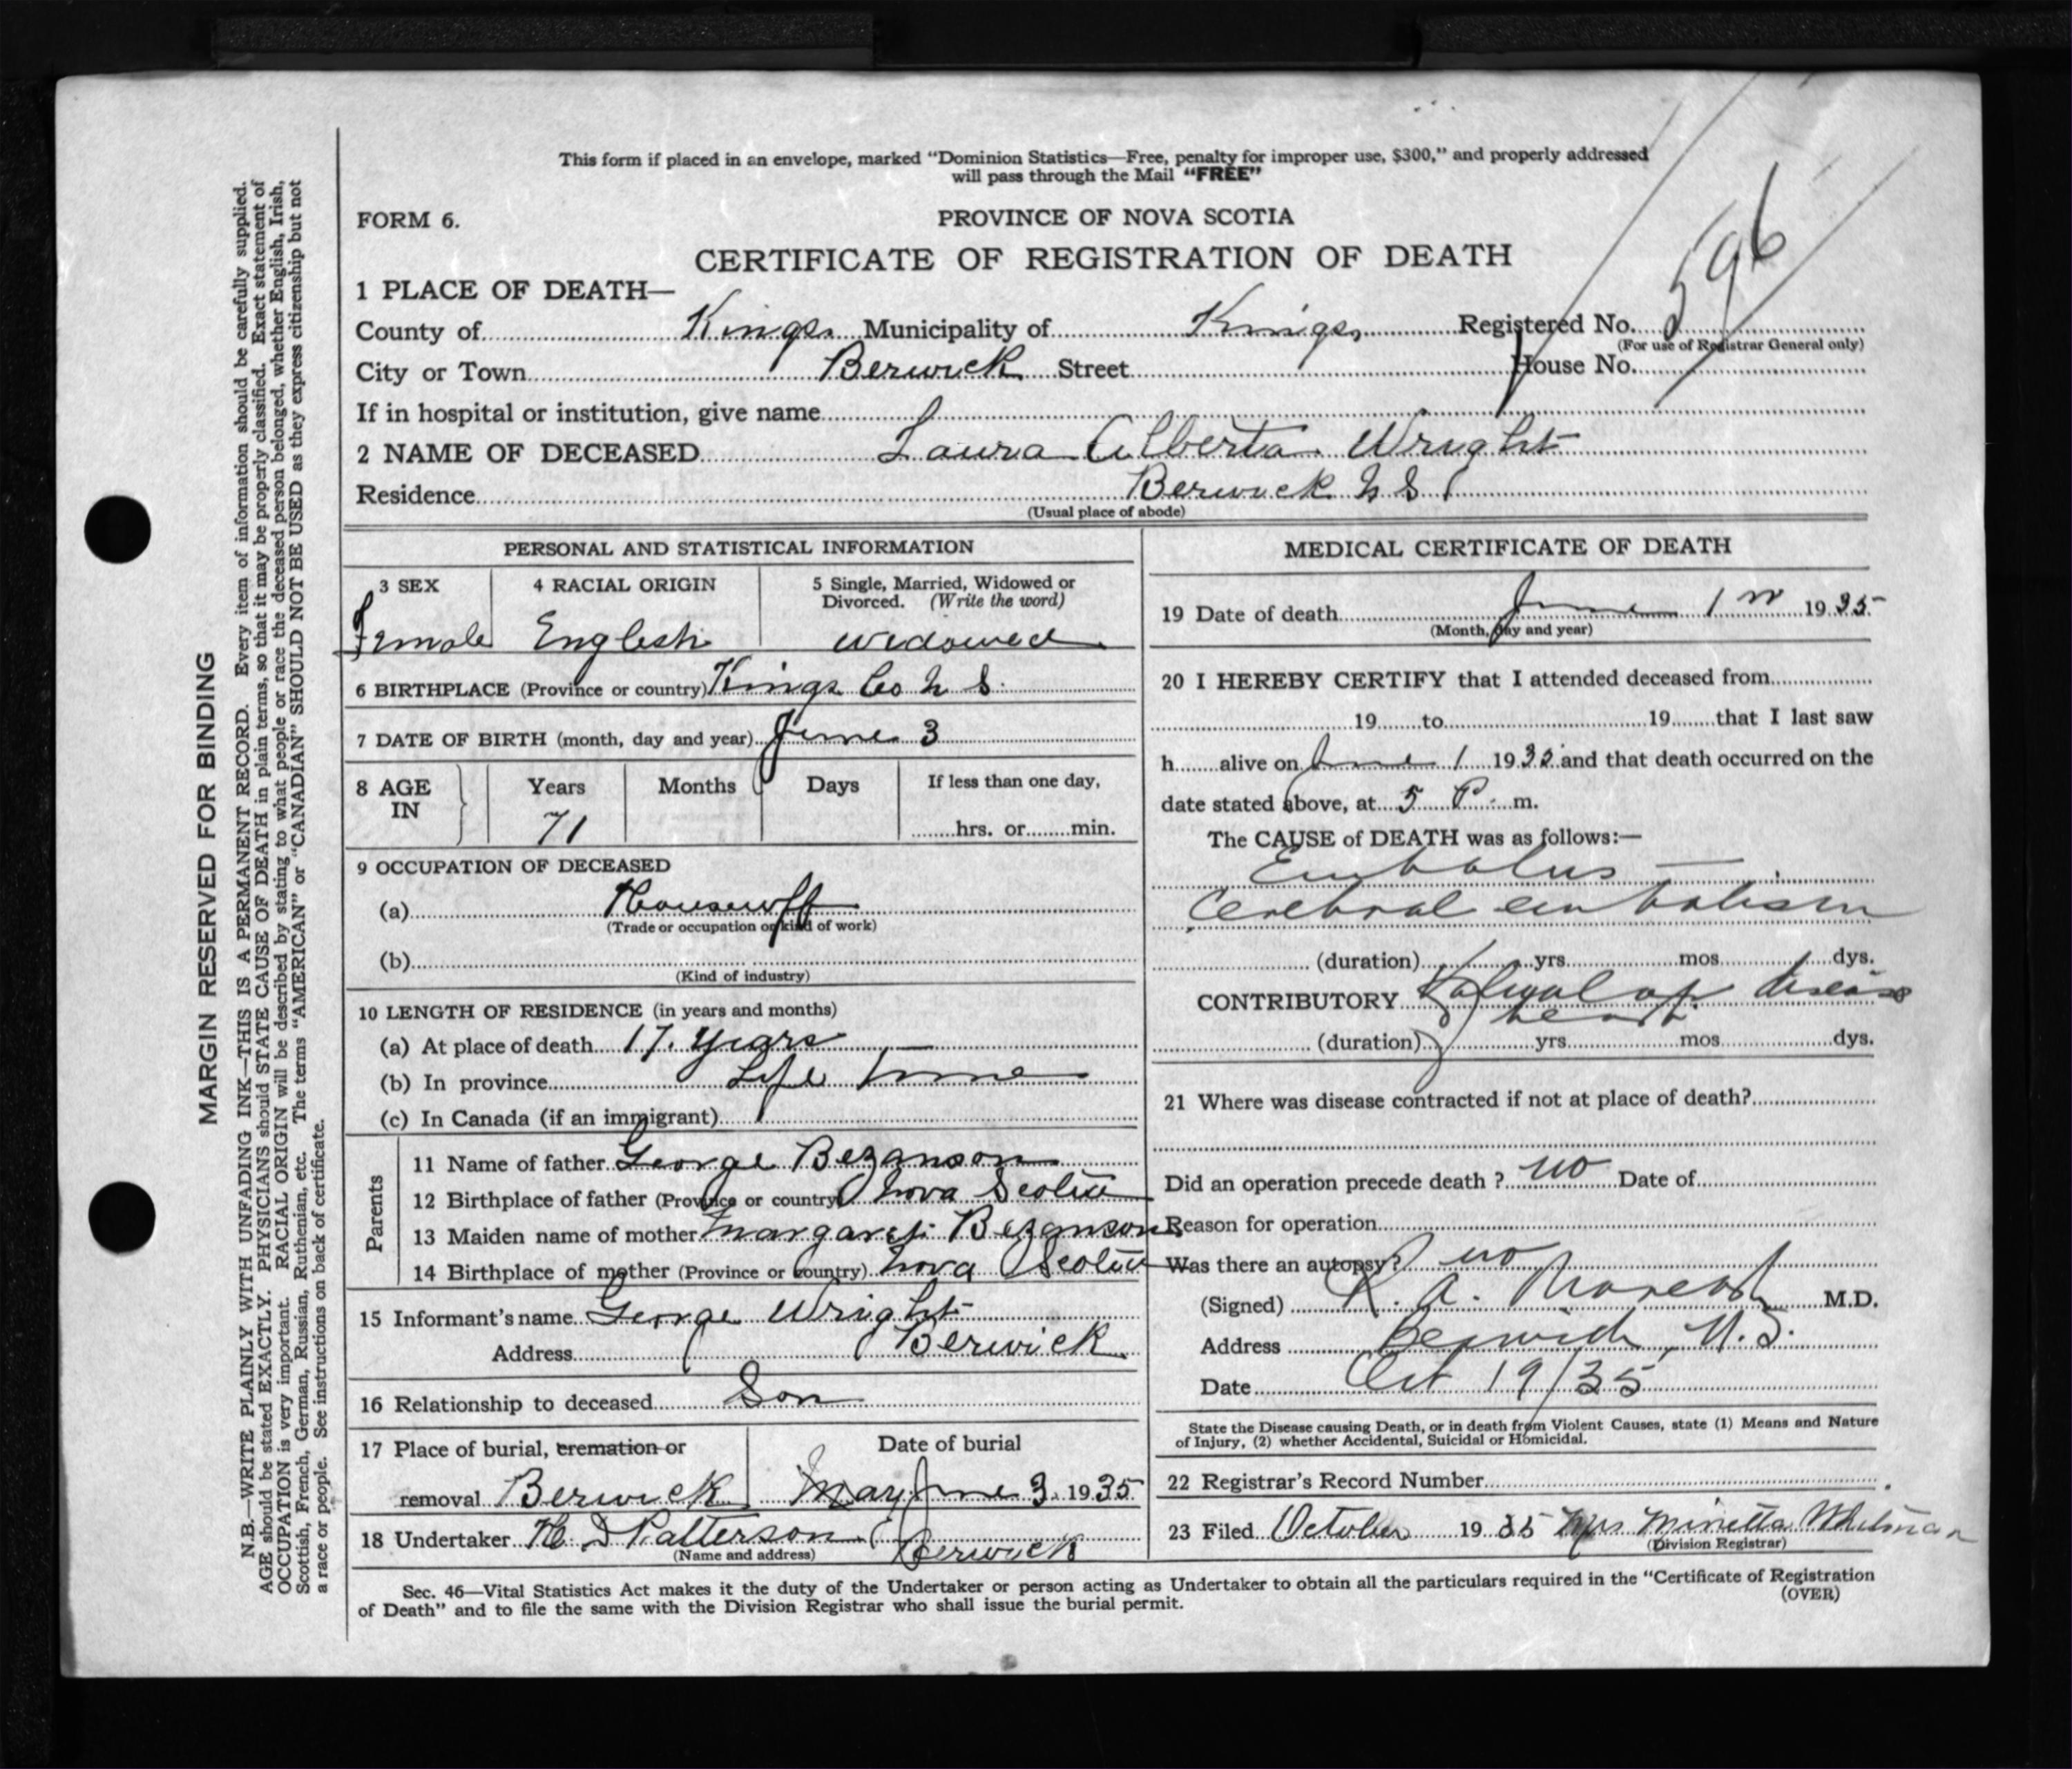 This form if placed in an envelope, marked "Dominion Statistics—Free, penalty for improper use, $300," and properly addressed
will pass through the Mail "FREE"
FORM 6.
PROVINCE OF NOVA SCOTIA
CERTIFICATE OF REGISTRATION OF DEATH
596
1 PLACE OF DEATH—
County of Kings Municipality of Kings Registered No.
(For use of Registrar General only)
City or Town Berwick Street House No.
If in hospital or institution, give name
2 NAME OF DECEASED Laura Alberta Wright
Residence Berwick N S
(Usual place of abode)
PERSONAL AND STATISTICAL INFORMATION
3 SEX
Female
4 RACIAL ORIGIN
English
5 Single, Married, Widowed or
Divorced. (Write the word)
widowed
6 BIRTHPLACE (Province or country) Kings Co N S.
7 DATE OF BIRTH (month, day and year) June 3
8 AGE
IN
Years
71
Months
Days
If less than one day,
hrs. or min.
9 OCCUPATION OF DECEASED
(a) Housewife
(Trade or occupation or kind of work)
(b)
(Kind of industry)
10 LENGTH OF RESIDENCE (in years and months)
(a) At place of death 17. years
(b) In province Life time
(c) In Canada (if an immigrant)
Parents
11 Name of father George Bezanson
12 Birthplace of father (Province or country) Nova Scotia
13 Maiden name of mother Margaret Bezanson
14 Birthplace of mother (Province or country) Nova Scotia
15 Informant's name George Wright
Address Berwick
16 Relationship to deceased Son
17 Place of burial, cremation or
removal Berwick
Date of burial
May June 3. 1935
18 Undertaker H. D Patterson Berwick
(Name and address)
MEDICAL CERTIFICATE OF DEATH
19 Date of death June 1 1935
(Month, day and year)
20 I HEREBY CERTIFY that I attended deceased from
19 to 19 that I last saw
h alive on June 1 1935 and that death occurred on the
date stated above, at 5 P. m.
The CAUSE of DEATH was as follows:—
Embolus —
Cerebral embolism
(duration) yrs mos dys.
CONTRIBUTORY Valvular disease
heart
(duration) yrs mos dys.
21 Where was disease contracted if not at place of death?
Did an operation precede death? no Date of
Reason for operation
Was there an autopsy? no
(Signed) M.D.
Address Berwick, N.S.
Date Oct 19/35
State the Disease causing Death, or in death from Violent Causes, state (1) Means and Nature
of Injury, (2) whether Accidental, Suicidal or Homicidal.
22 Registrar's Record Number
23 Filed October 1935 Mrs Minetta Whitman
(Division Registrar)
Sec. 46—Vital Statistics Act makes it the duty of the Undertaker or person acting as Undertaker to obtain all the particulars required in the "Certificate of Registration
of Death" and to file the same with the Division Registrar who shall issue the burial permit.
(OVER)
MARGIN RESERVED FOR BINDING
N.B.—WRITE PLAINLY WITH UNFADING INK—THIS IS A PERMANENT RECORD. Every item of information should be carefully supplied.
AGE should be stated EXACTLY. PHYSICIANS should STATE CAUSE OF DEATH in plain terms, so that it may be properly classified. Exact statement of
OCCUPATION is very important. RACIAL ORIGIN will be described by stating to what people or race the deceased person belonged, whether English, Irish,
Scottish, French, German, Russian, Ruthenian, etc. The terms "AMERICAN" or "CANADIAN" SHOULD NOT BE USED as they express citizenship but not
a race or people. See instructions on back of certificate.